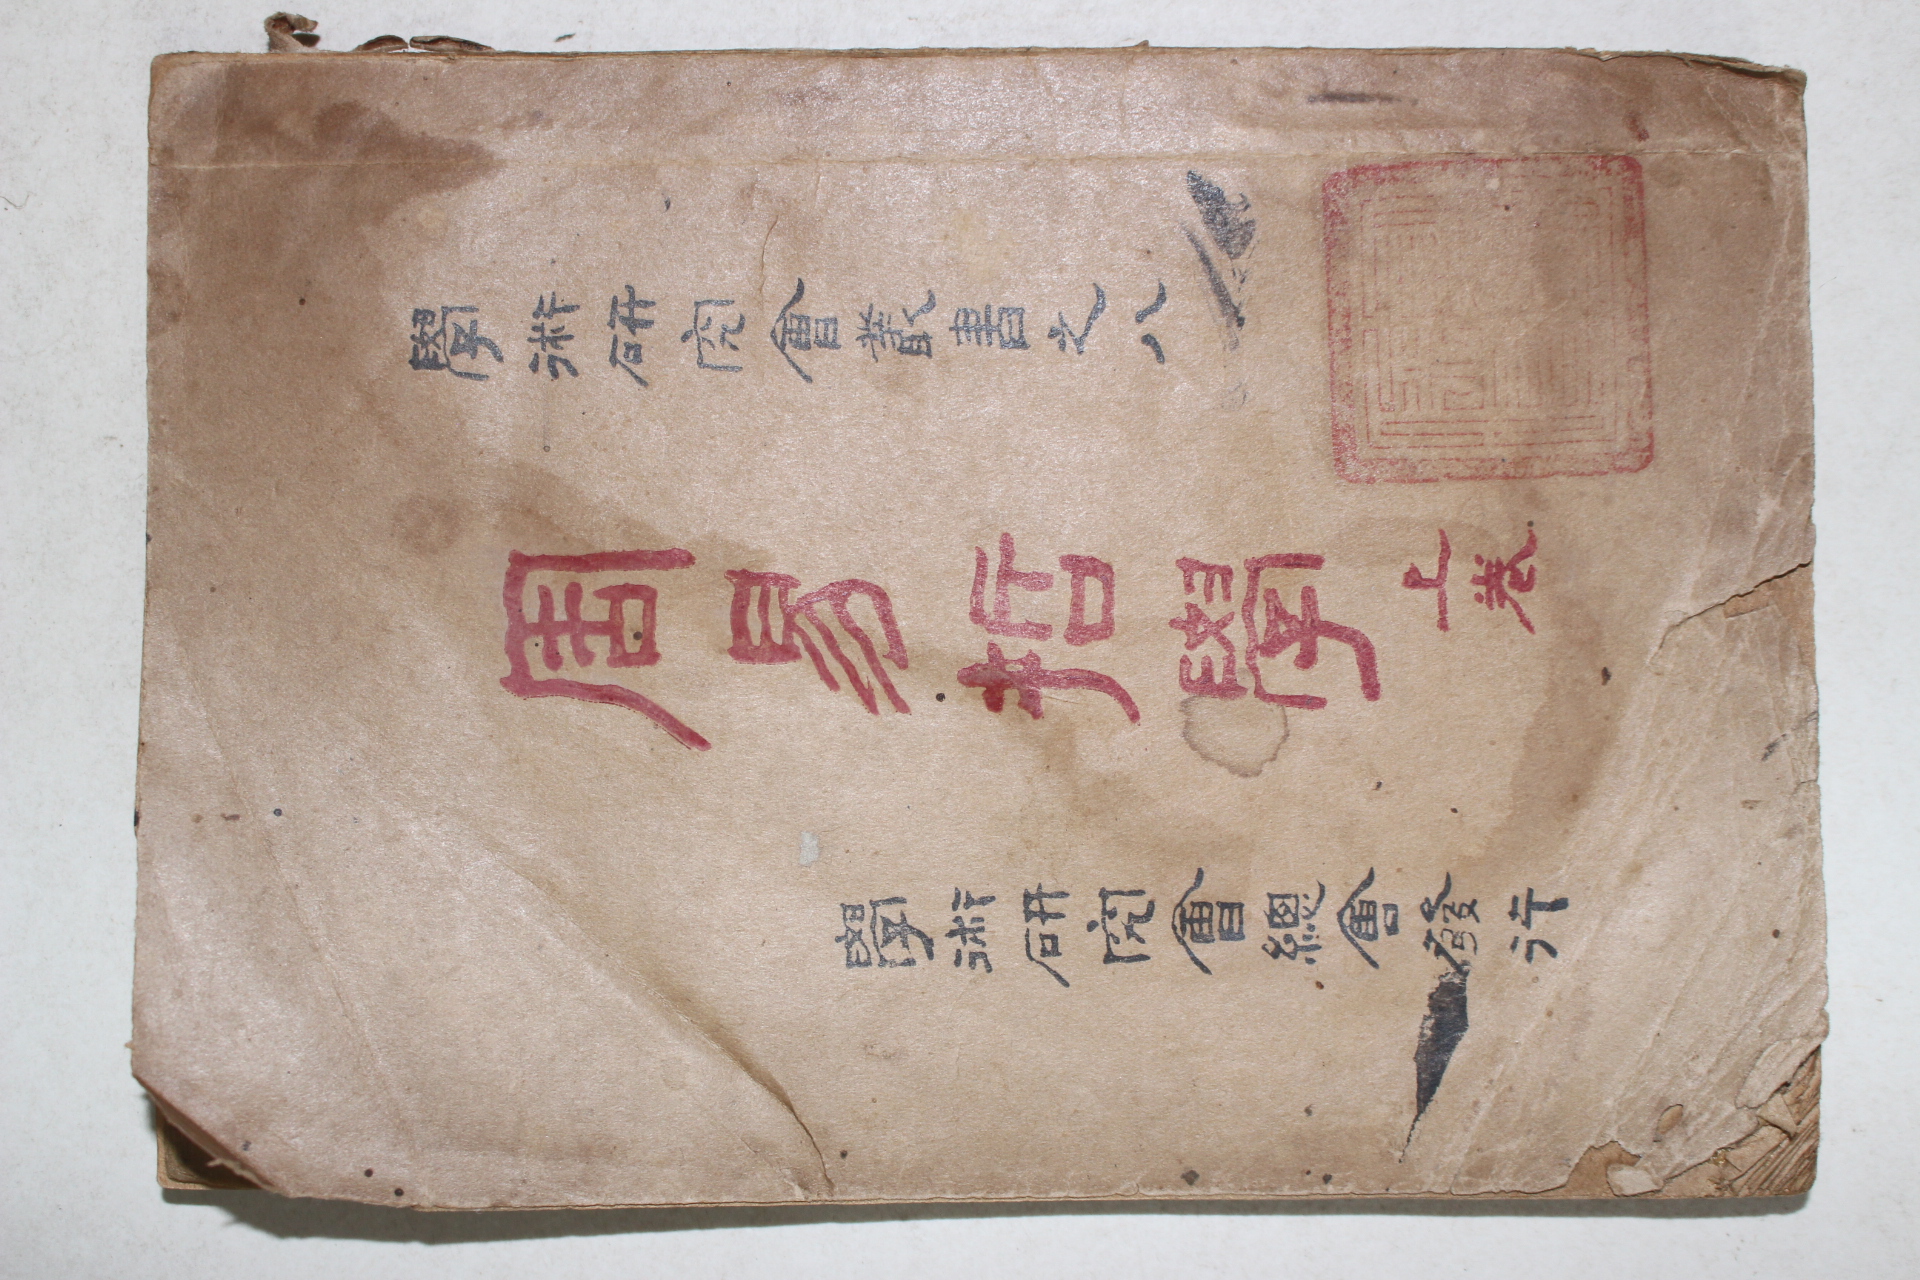 學術研究會叢書之八
周易哲學 上卷
學術研究會總會發行